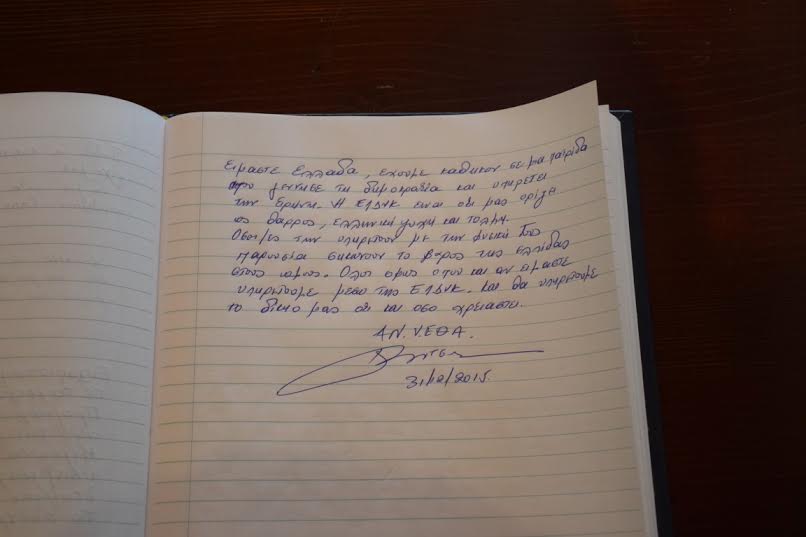 Ειμαστε Ελλαδα, εχουμε καθηκον σε μια πατριδα
που γεννησε τη δημοκρατια και υπηρετει
την Ειρηνη. Η ΕΛΔΥΚ ειναι οτι μας οριζει
ως θαρρος, ελληνικη ψυχη και τολμη.
Οσοι/ες την υπηρετουν με την φυσικη τους
παρουσια σηκωνουν το βαρος της ελπιδας
στους ωμους. Ολοι ομως οπου και αν ειμαστε
υπηρετουμε μεσω της ΕΛΔΥΚ. και θα υπηρετουμε
το δικιο μας οτι και οσο χρειαστει.
ΑΝ.ΥΕΘΑ.
31/12/2015